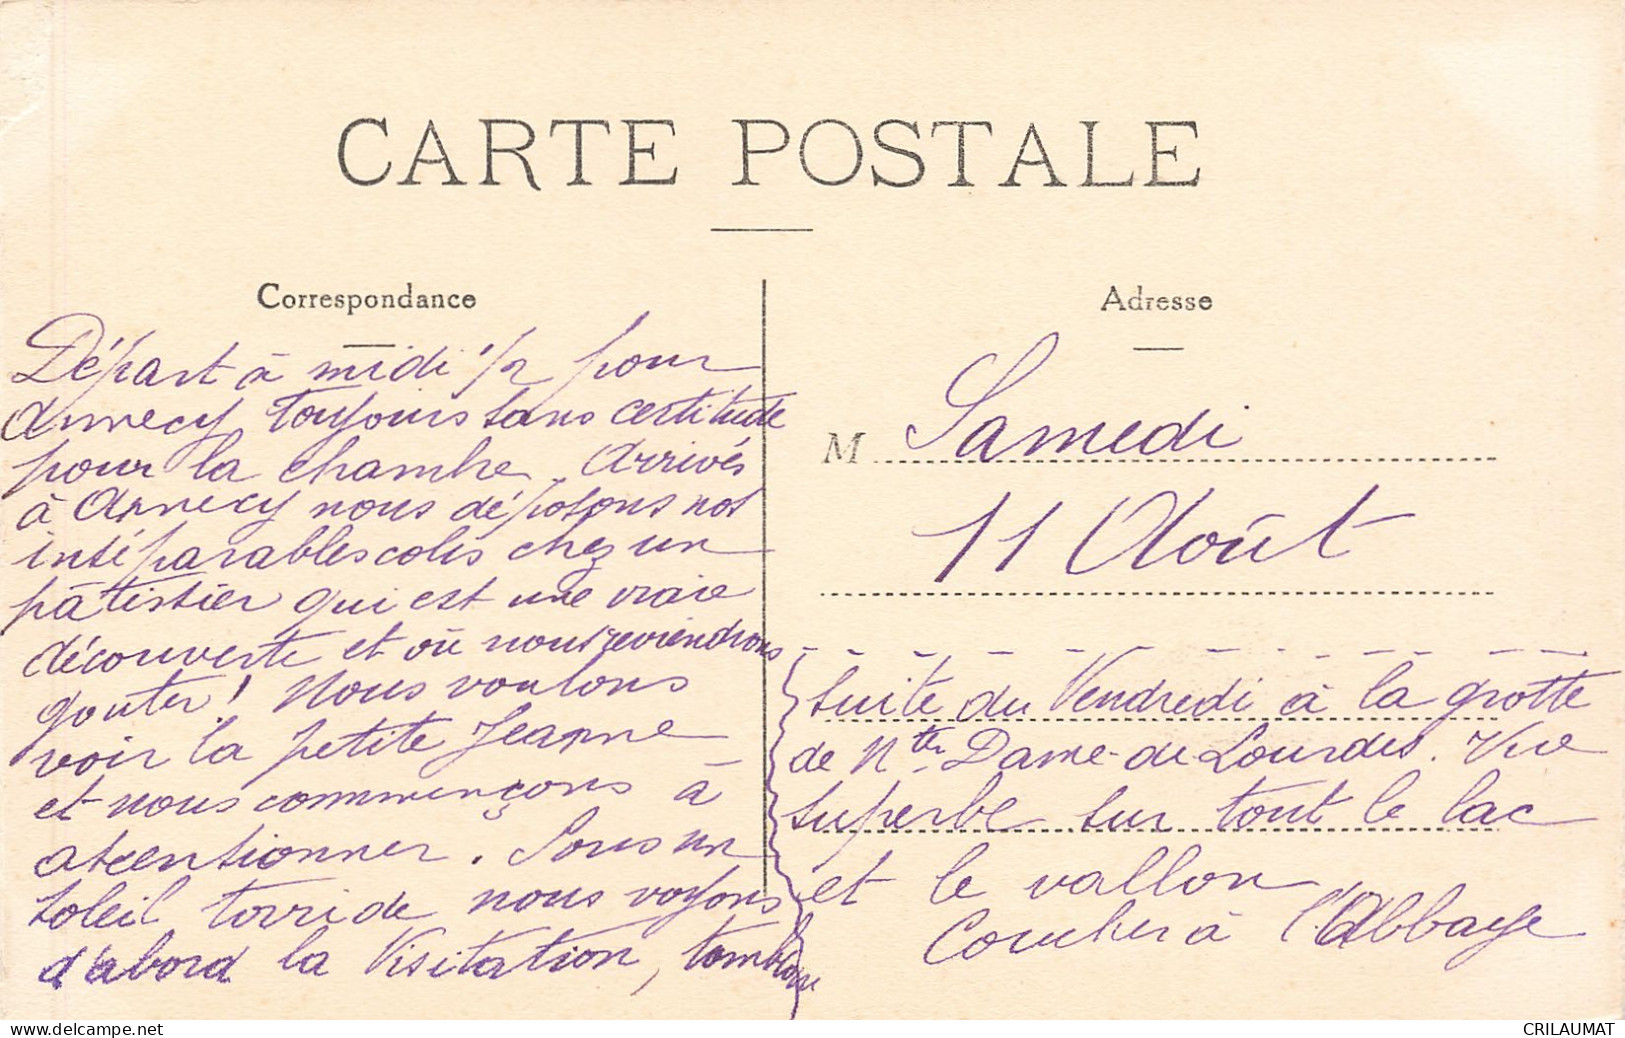 CARTE POSTALE
Correspondance
Départ à midi 1/2 pour
Annecy toujours sans certitude
pour la chambre. Arrivés
à Annecy nous déposons nos
inséparables colis chez un
pâtissier qui est une vraie
découverte et où nous reviendrons
gouter! Nous voulons
voir la petite Jeanne
et nous commençons à
. Sous un
soleil torride nous voyons
d'abord la Visitation, tombeau
Adresse
M Samedi
11 Août
Suite du Vendredi à la grotte
de Ntre Dame-de Lourdes. Vue
superbe sur tout le lac
et le vallon
Coucher à l'Abbaye
CRILAUMAT
www.delcampe.net